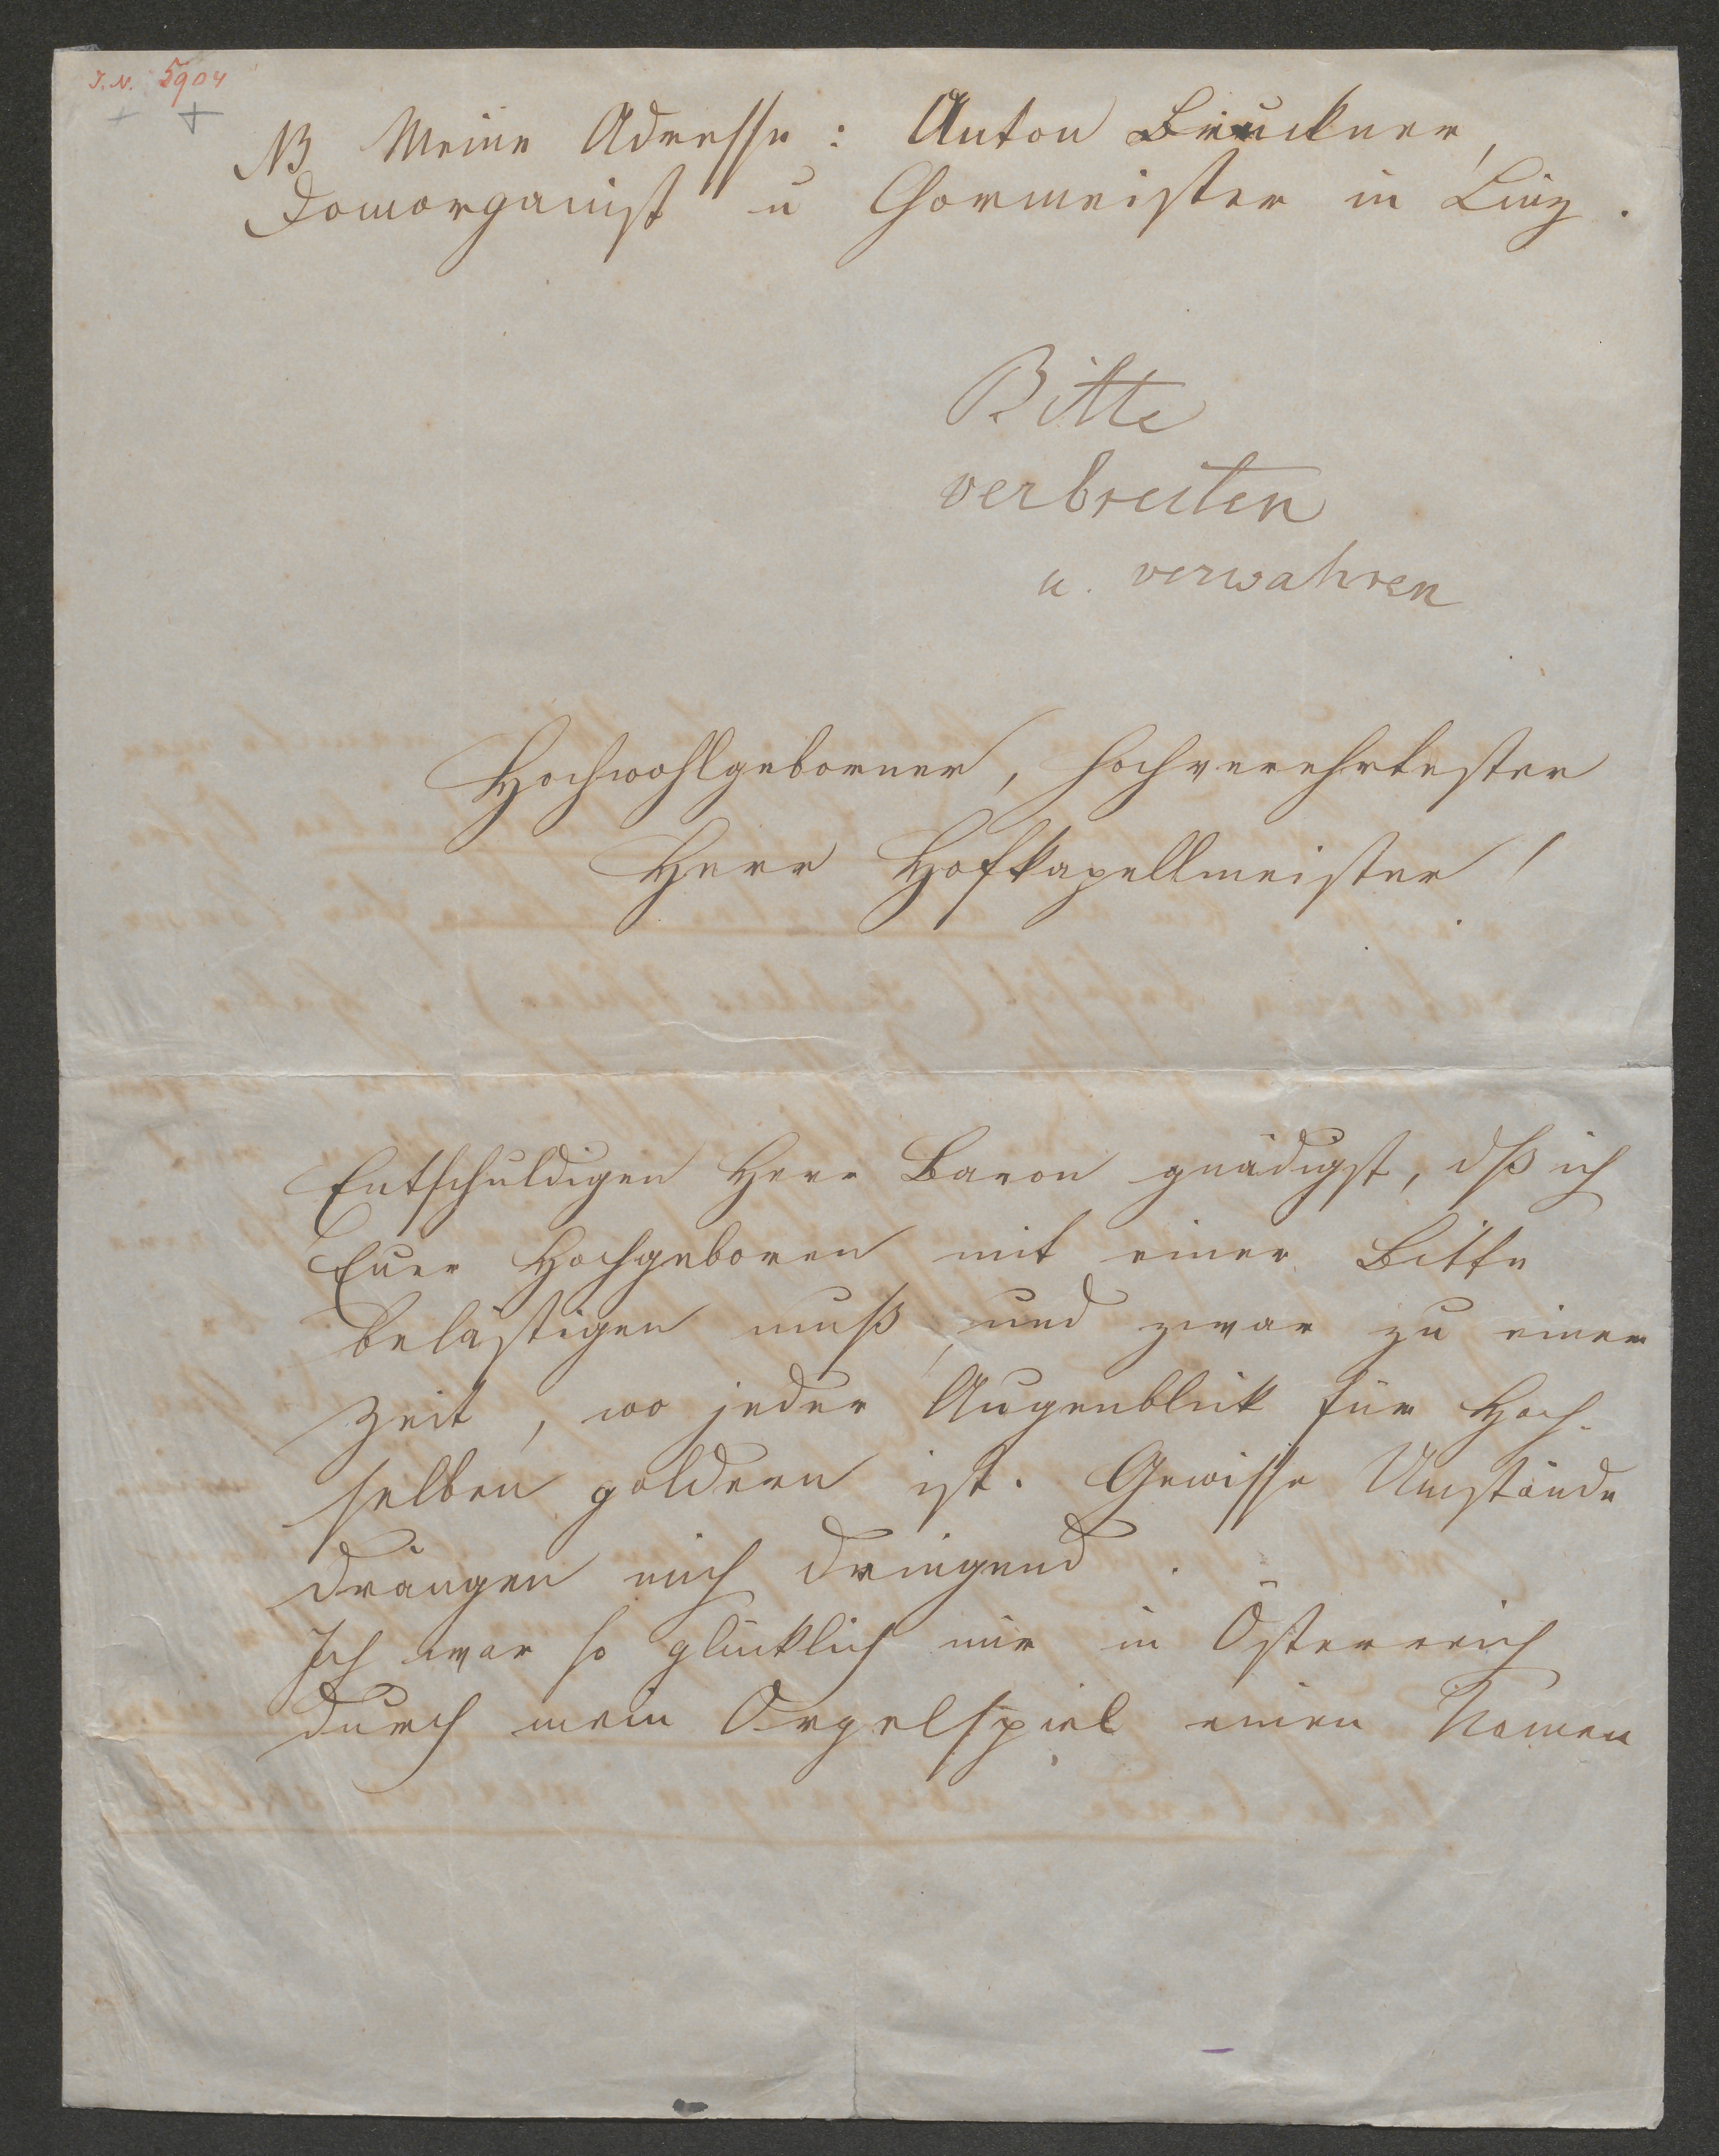 I.N. 5904
NB Meine Adresse: Anton Bruckner,
Domorganist u Chormeister in Linz.
Bitte
verbreiten
u. verwahren
Hochwohlgeborner, hochverehrtester
Herr Hofkapellmeister!
Entschuldigen Herr Baron gnädigst, dß ich
Euer Hochgeboren mit einer Bitte
belästigen muß, und zwar zu einer
Zeit, wo jeder Augenblick für Hoch-
selben goldern ist. Gewisse Umstände
drängen mich dringend.
Ich war so glücklich mir in Österreich
durch mein Orgelspiel einen Namen